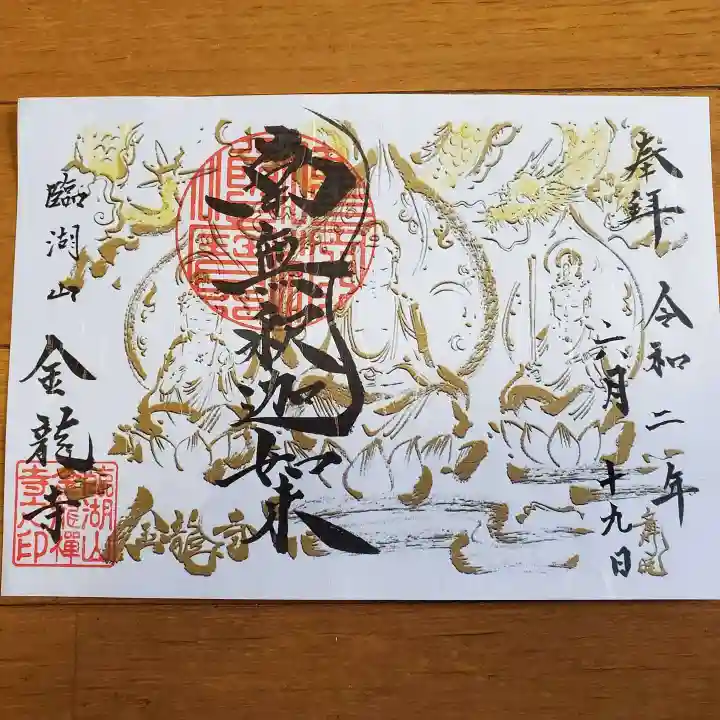 奉拝
令和二年
六月十九日
南無釈迦如来
臨湖山
金龍寺
金龍寺
臨湖山
金龍禅
寺之印